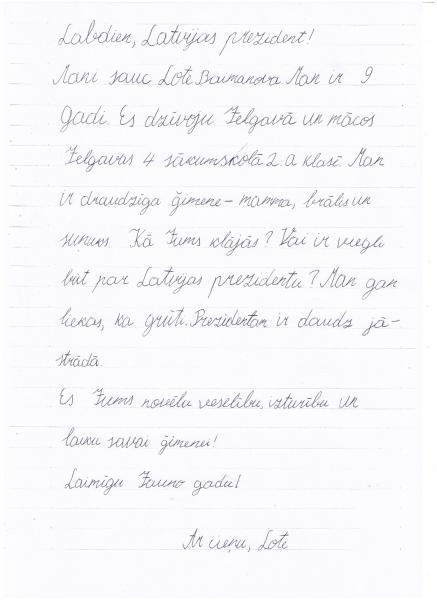 Labdien, Latvijas prezident!
Mani sauc Lote Baimanova Man ir 9
gadi. Es dzīvoju Jelgavā un mācos
Jelgavas 4 sākumskolā 2. a klasē. Man
ir draudzīga ģimene - mamma, brālis un
suņuks. Kā Jums klājās? Vai ir viegli
būt par Latvijas prezidentu? Man gan
liekas, ka grūti. Prezidentam ir daudz jā-
strādā.
Es Jums novēlu veselību, izturību un
laiku savai ģimenei!
Laimīgu Jauno gadu!
Ar cieņu, Lote